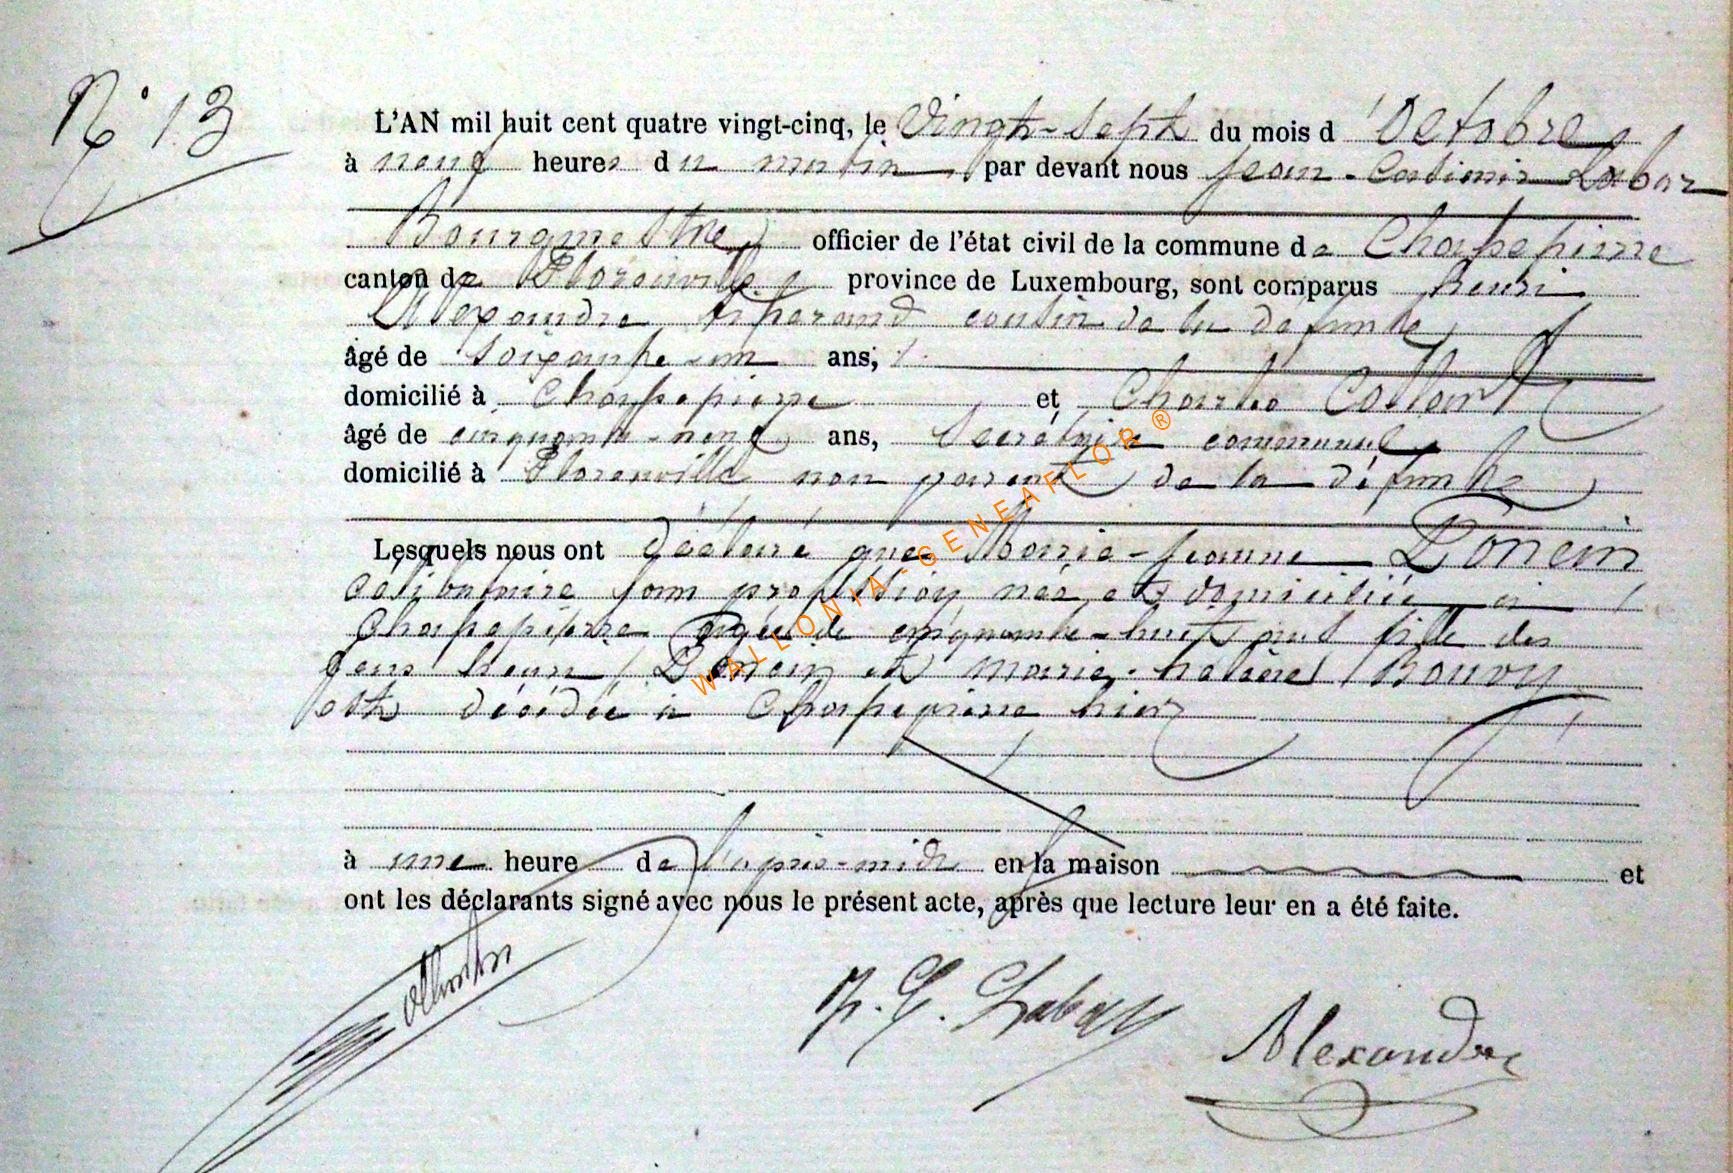 N° 13
L'AN mil huit cent quatre vingt-cinq, le Vingt-sept du mois d'Octobre
à neuf heures du matin, par devant nous Jean-Casimir Labar
Bourgmestre, officier de l'état civil de la commune de Chassepierre
canton de Florenville, province de Luxembourg, sont comparus Henri
Alexandre cousin de la defunte,
âgé de soixante-un ans,
domicilié à Chassepierre et Charles Collart
âgé de cinquante-neuf ans, Secrétaire communal
domicilié à Florenville non parent de la défunte
Lesquels nous ont déclaré que Marie-Jeanne Poncin
célibataire sans profession née et domiciliée à
Chassepierre agée de cinquante-huit ans fille des
feus Henri Poncin et Marie-Helène Bouvy
est décédée à Chassepierre hier
à une heure de l'après-midi en la maison et
ont les déclarants signé avec nous le présent acte, après que lecture leur en a été faite.
Labar
Alexandre
WALLONIA-GENEAFLOR ®